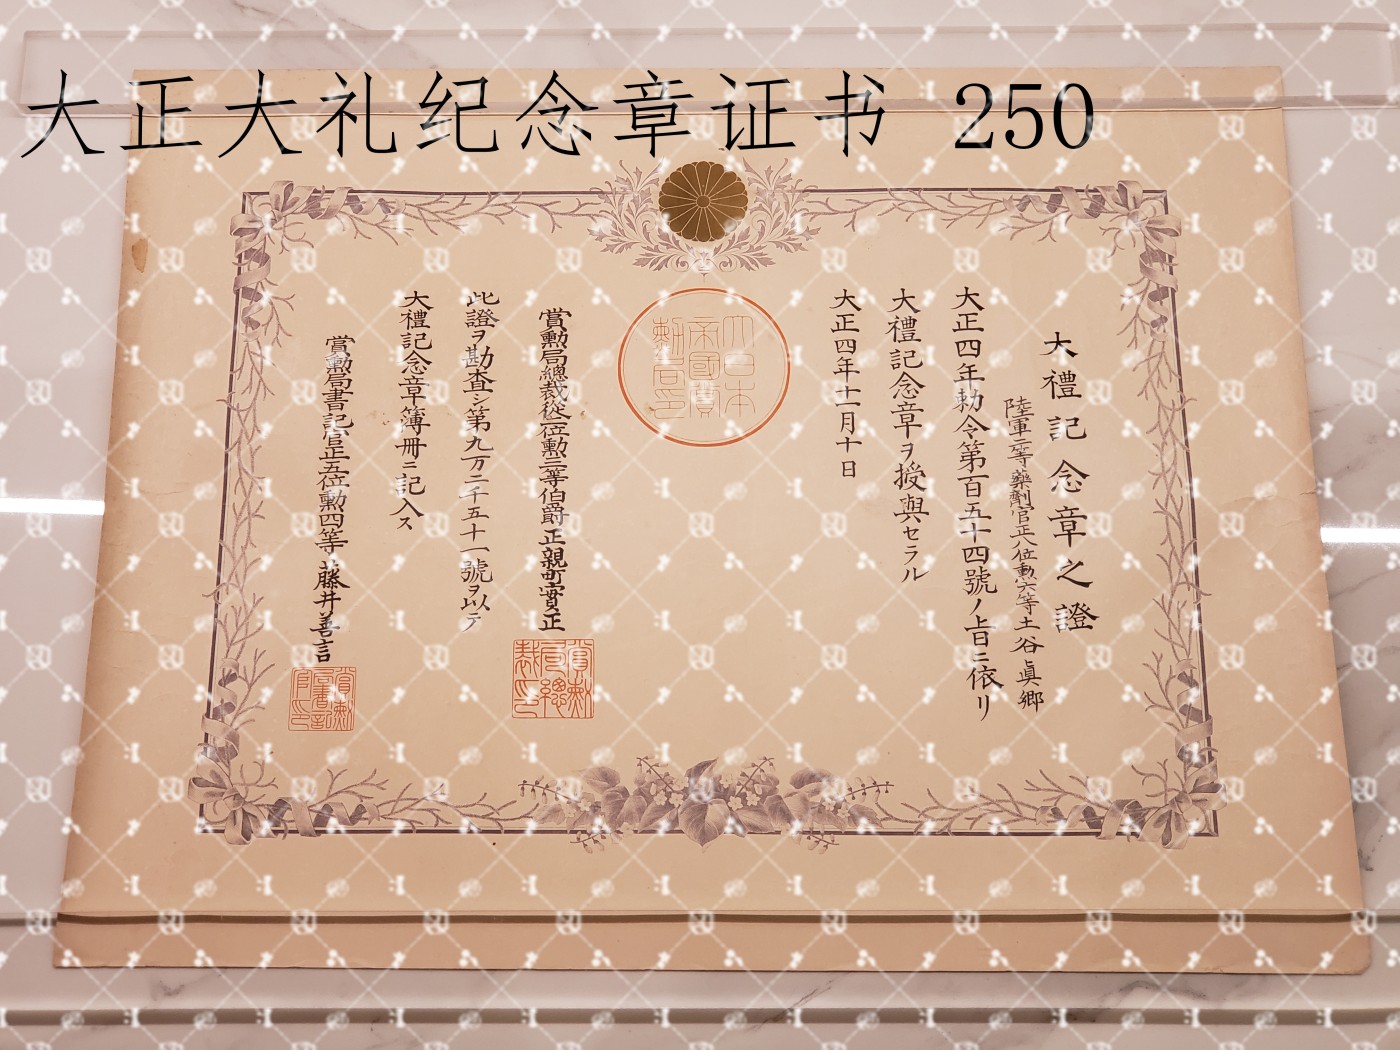 大正大礼纪念章证书 250
大禮記念章之證
陸軍二等藥劑官正八位勲六等土谷眞郷
大正四年勅令第百五十四號ノ旨ニ依リ
大禮記念章ヲ授與セラル
大正四年十一月十日
大日本
帝國賞
勲局印
賞勲局總裁從二位勲二等伯爵正親町實正
賞勲
局總
裁印
此證ヲ勘査シ第九万二千五十一號ヲ以テ
大禮記念章簿册ニ記入ス
賞勲局書記官正五位勲四等藤井善言
賞勲
局書記
官印